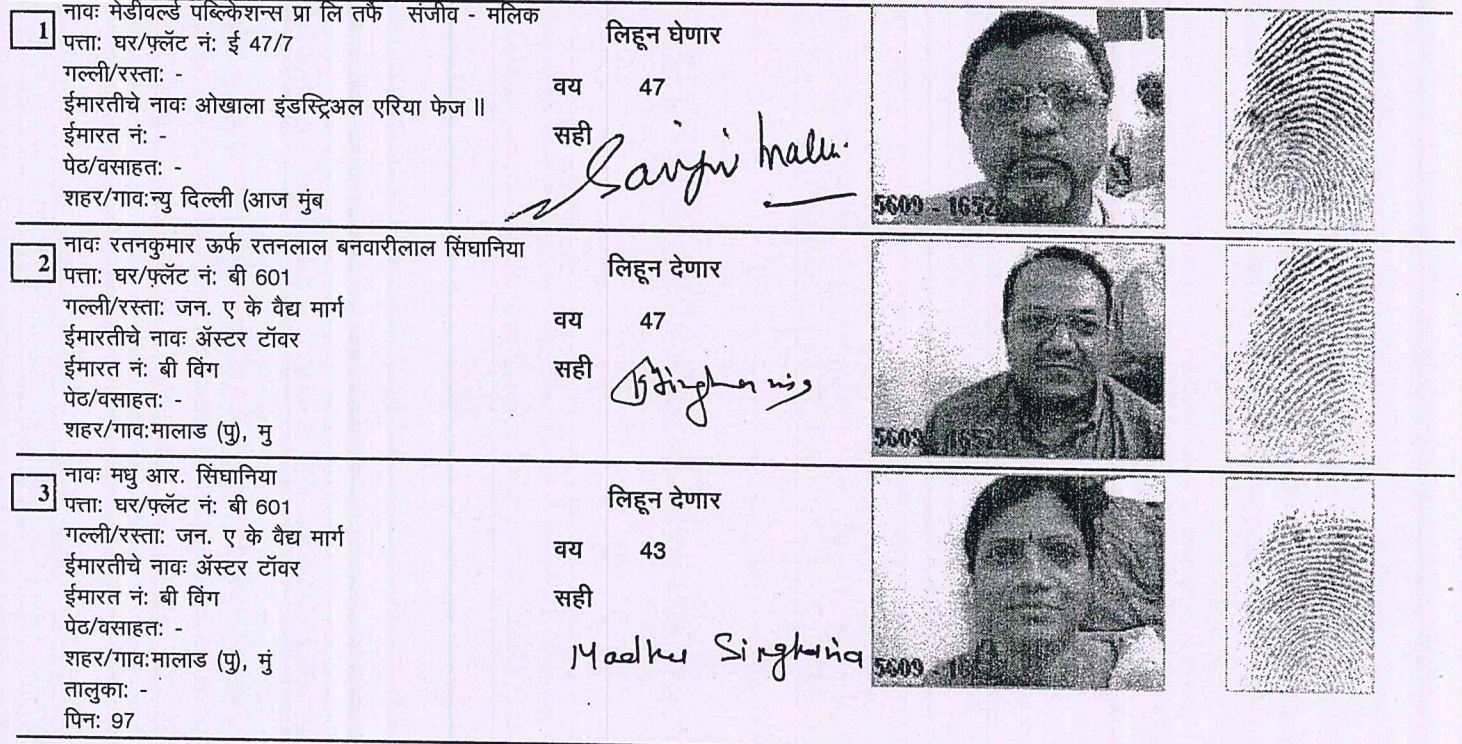 1
नावः मेडीवर्ल्ड पब्ल्किेशन्स प्रा लि तर्फे संजीव - मलिक
पत्ता: घर/फ़्लॅट नं: ई 47/7
गल्ली/रस्ता: -
ईमारतीचे नावः ओखाला इंडस्ट्रिअल एरिया फेज II
ईमारत नं: -
पेठ/वसाहत: -
शहर/गाव:न्यु दिल्ली (आज मुंब
लिहून घेणार
वय 47
सही
Sanjiv Malik
5609 - 1652
2
नावः रतनकुमार ऊर्फ रतनलाल बनवारीलाल सिंघानिया
पत्ता: घर/फ़्लॅट नं: बी 601
गल्ली/रस्ता: जन. ए के वैद्य मार्ग
ईमारतीचे नावः ॲस्टर टॉवर
ईमारत नं: बी विंग
पेठ/वसाहत: -
शहर/गाव:मालाड (पु), मु
लिहून देणार
वय 47
सही
5609 - 1652
3
नावः मधु आर. सिंघानिया
पत्ता: घर/फ़्लॅट नं: बी 601
गल्ली/रस्ता: जन. ए के वैद्य मार्ग
ईमारतीचे नावः ॲस्टर टॉवर
ईमारत नं: बी विंग
पेठ/वसाहत: -
शहर/गाव:मालाड (पु), मुं
तालुका: -
पिन: 97
लिहून देणार
वय 43
सही
Madhu Singhania
5609